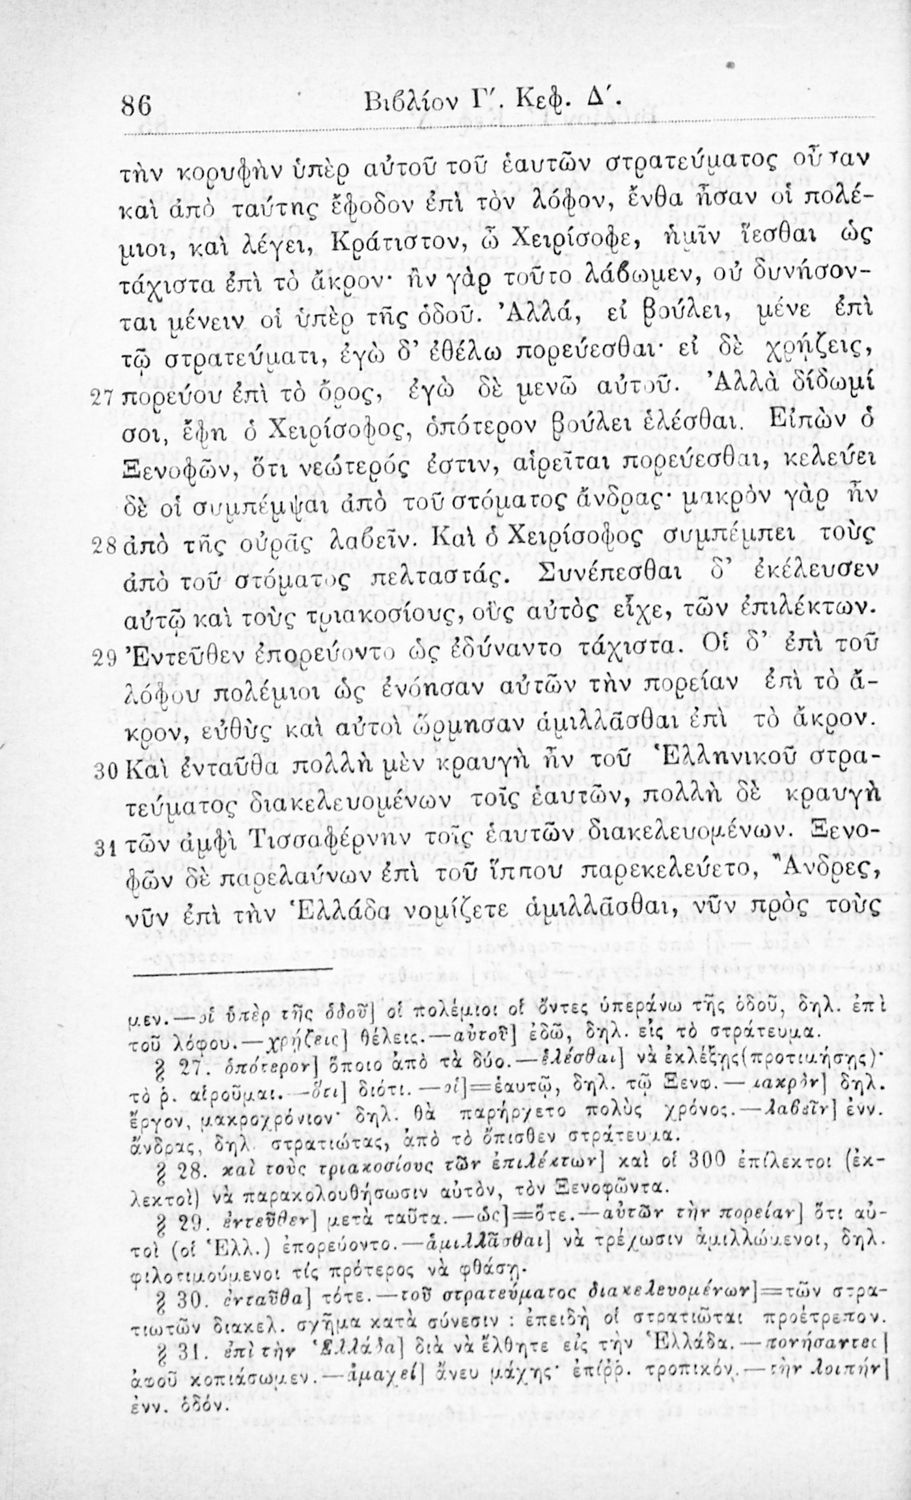 86 Βιβλίον Γ'. Κεφ. Δ'.
τὴν κορυφὴν ὑπὲρ αὐτοῦ τοῦ ἑαυτῶν στρατεύματος οὖσαν
καὶ ἀπὸ ταύτης ἔφοδον ἐπὶ τὸν λόφον, ἔνθα ἦσαν οἱ πολέ-
μιοι, καὶ λέγει, Κράτιστον, ὦ Χειρίσοφε, ἡμῖν ἵεσθαι ὡς
τάχιστα ἐπὶ τὸ ἄκρον· ἢν γὰρ τοῦτο λάβωμεν, οὐ δυνήσον-
ται μένειν οἱ ὑπὲρ τῆς ὁδοῦ. Ἀλλά, εἰ βούλει, μένε ἐπὶ
τῷ στρατεύματι, ἐγὼ δ' ἐθέλω πορεύεσθαι· εἰ δὲ χρῄζεις,
27 πορεύου ἐπὶ τὸ ὄρος, ἐγὼ δὲ μενῶ αὐτοῦ. Ἀλλὰ δίδωμί
σοι, ἔφη ὁ Χειρίσοφος, ὁπότερον βούλει ἑλέσθαι. Εἰπὼν ὁ
Ξενοφῶν, ὅτι νεώτερός ἐστιν, αἱρεῖται πορεύεσθαι, κελεύει
δὲ οἱ συμπέμψαι ἀπὸ τοῦ στόματος ἄνδρας· μακρὸν γὰρ ἦν
28 ἀπὸ τῆς οὐρᾶς λαβεῖν. Καὶ ὁ Χειρίσοφος συμπέμπει τοὺς
ἀπὸ τοῦ στόματος πελταστάς. Συνέπεσθαι δ' ἐκέλευσεν
αὐτῷ καὶ τοὺς τριακοσίους, οὓς αὐτὸς εἶχε, τῶν ἐπιλέκτων.
29 Ἐντεῦθεν ἐπορεύοντο ὡς ἐδύναντο τάχιστα. Οἱ δ' ἐπὶ τοῦ
λόφου πολέμιοι ὡς ἐνόησαν αὐτῶν τὴν πορείαν ἐπὶ τὸ ἄ-
κρον, εὐθὺς καὶ αὐτοὶ ὥρμησαν ἁμιλλᾶσθαι ἐπὶ τὸ ἄκρον.
30 Καὶ ἐνταῦθα πολλὴ μὲν κραυγὴ ἦν τοῦ Ἑλληνικοῦ στρα-
τεύματος διακελευομένων τοῖς ἑαυτῶν, πολλὴ δὲ κραυγὴ
31 τῶν ἀμφὶ Τισσαφέρνην τοῖς ἑαυτῶν διακελευομένων. Ξενο-
φῶν δὲ παρελαύνων ἐπὶ τοῦ ἵππου παρεκελεύετο, Ἄνδρες,
νῦν ἐπὶ τὴν Ἑλλάδα νομίζετε ἁμιλλᾶσθαι, νῦν πρὸς τοὺς
μεν.—οἱ ὑπὲρ τῆς ὁδοῦ] οἱ πολέμιοι οἱ ὄντες ὑπεράνω τῆς ὁδοῦ, δηλ. ἐπὶ
τοῦ λόφου.—χρῄζεις] θέλεις.—αὐτοῦ] ἐδῶ, δηλ. εἰς τὸ στράτευμα.
§ 27. ὁπότερον] ὅποιο ἀπὸ τὰ δύο.—ἑλέσθαι] νὰ ἐκλέξῃς(προτιμήσῃς)·
τὸ ῥ. αἱροῦμαι.—ὅτι] διότι.—οἱ]=ἑαυτῷ, δηλ. τῷ Ξενοφ.—μακρὸν] δηλ.
ἔργον, μακροχρόνιον· δηλ. θὰ παρήρχετο πολὺς χρόνος.—λαβεῖν] ἐνν.
ἄνδρας, δηλ. στρατιώτας, ἀπὸ τὸ ὄπισθεν στράτευμα.
§ 28. καὶ τοὺς τριακοσίους τῶν ἐπιλέκτων] καὶ οἱ 300 ἐπίλεκτοι (ἐκ-
λεκτοὶ) νὰ παρακολουθήσωσιν αὐτόν, τὸν Ξενοφῶντα.
§ 29. ἐντεῦθεν] μετὰ ταῦτα.—ὡς]=ὅτε.—αὐτῶν τὴν πορείαν] ὅτι αὐ-
τοὶ (οἱ Ἕλλ.) ἐπορεύοντο.—ἁμιλλᾶσθαι] νὰ τρέχωσιν ἁμιλλώμενοι, δηλ.
φιλοτιμούμενοι τίς πρότερος νὰ φθάσῃ.
§ 30. ἐνταῦθα] τότε.—τοῦ στρατεύματος διακελευομένων]=τῶν στρα-
τιωτῶν διακελ. σχῆμα κατὰ σύνεσιν : ἐπειδὴ οἱ στρατιῶται προέτρεπον.
§ 31. ἐπὶ τὴν Ἑλλάδα] διὰ νὰ ἔλθητε εἰς τὴν Ἑλλάδα.—πονήσαντες]
ἀφοῦ κοπιάσωμεν.—ἀμαχεί] ἄνευ μάχης· ἐπίῤῥ. τροπικόν.—τὴν λοιπὴν]
ἐνν. ὁδόν.